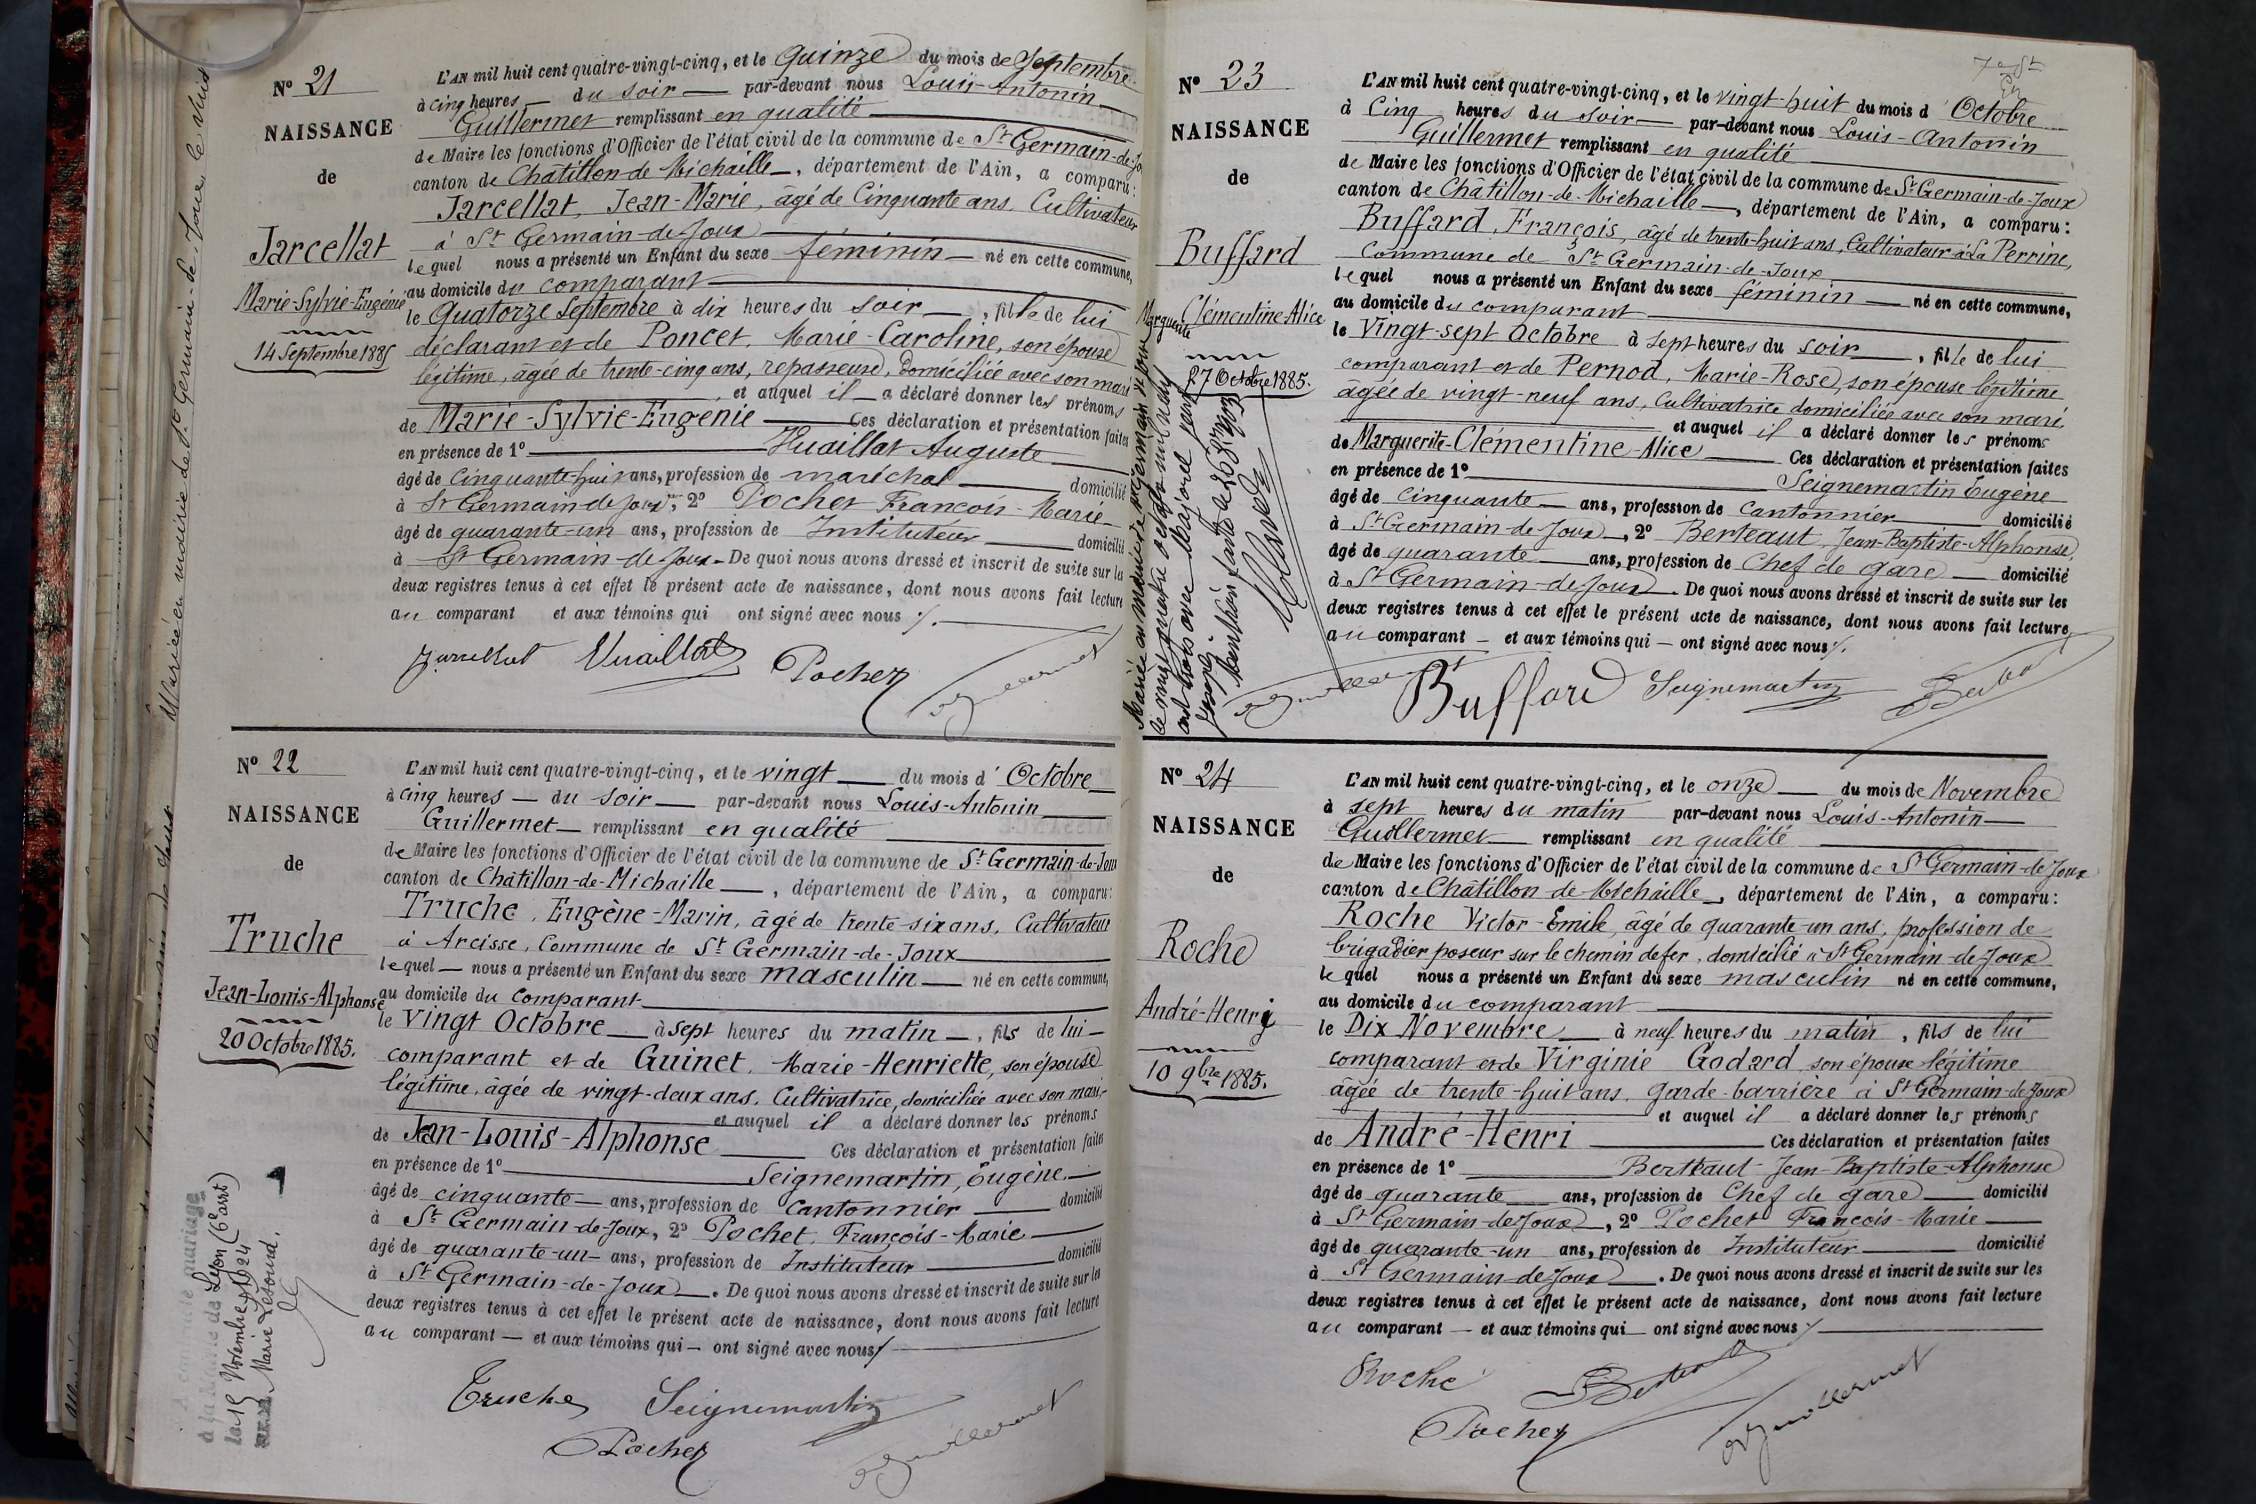 Nº 21
NAISSANCE
de
Jarcellat
Marie-Sylvie-Eugénie
14 Septembre 1885
L'AN mil huit cent quatre-vingt-cinq, et le Quinze du mois de Septembre
à cinq heures du soir par-devant nous Louis-Antonin
Guillermet remplissant en qualité
de Maire les fonctions d'Officier de l'état civil de la commune de St Germain-de-Jo
canton de Châtillon-de-Michaille, département de l'Ain, a comparu:
Jarcellat, Jean-Marie, âgé de Cinquante ans, Cultivateur
à St Germain-de-Joux
lequel nous a présenté un Enfant du sexe féminin né en cette commune,
au domicile du comparant
le Quatorze Septembre à dix heures du soir, fille de lui
déclarant et de Poncet, Marie-Caroline, son épouse
légitime, âgée de trente-cinq ans, repasseuse, domiciliée avec son mari
et auquel il a déclaré donner les prénoms
de Marie-Sylvie-Eugénie Ces déclaration et présentation faites
en présence de 1º Vuaillat Auguste
âgé de cinquante-huit ans, profession de maréchal domicilié
à St Germain-de-Joux, 2º Pochet François-Marie
âgé de quarante-un ans, profession de Instituteur domicilié
à St Germain-de-Joux. De quoi nous avons dressé et inscrit de suite sur les
deux registres tenus à cet effet le présent acte de naissance, dont nous avons fait lecture
au comparant et aux témoins qui ont signé avec nous
Jarcellat Vuaillat Pochet
Guillermet
Mariée en mairie de St Germain-de-Joux, le
Nº 22
NAISSANCE
de
Truche
Jean-Louis-Alphonse
20 Octobre 1885.
à la Mairie de Lyon (6e arrt)
le 15 Novembre 1924
Marie Lesourd.
L'AN mil huit cent quatre-vingt-cinq, et le vingt du mois d'Octobre
à cinq heures du soir par-devant nous Louis-Antonin
Guillermet remplissant en qualité
de Maire les fonctions d'Officier de l'état civil de la commune de St Germain-de-Joux
canton de Châtillon-de-Michaille, département de l'Ain, a comparu:
Truche, Eugène-Marin, âgé de trente-six ans, Cultivateur
à Arcisse, Commune de St Germain-de-Joux
lequel nous a présenté un Enfant du sexe masculin né en cette commune,
au domicile du comparant
le Vingt Octobre à sept heures du matin, fils de lui
comparant et de Guinet, Marie-Henriette, son épouse
légitime, âgée de vingt-deux ans, Cultivatrice, domiciliée avec son mari,
et auquel il a déclaré donner les prénoms
de Jean-Louis-Alphonse Ces déclaration et présentation faites
en présence de 1º Seignemartin, Eugène
âgé de cinquante ans, profession de Cantonnier domicilié
à St Germain-de-Joux, 2º Pochet, François-Marie
âgé de quarante-un ans, profession de Instituteur domicilié
à St Germain-de-Joux. De quoi nous avons dressé et inscrit de suite sur les
deux registres tenus à cet effet le présent acte de naissance, dont nous avons fait lecture
au comparant et aux témoins qui ont signé avec nous
Truche Seignemartin
Pochet Guillermet
Nº 23
NAISSANCE
de
Buffard
Marguerite Clémentine Alice
27 Octobre 1885.
L'AN mil huit cent quatre-vingt-cinq, et le vingt-huit du mois d'Octobre
à Cinq heures du soir par-devant nous Louis-Antonin
Guillermet remplissant en qualité
de Maire les fonctions d'Officier de l'état civil de la commune de St Germain-de-Joux
canton de Châtillon-de-Michaille, département de l'Ain, a comparu:
Buffard, François, âgé de trente-huit ans, Cultivateur à La Perrine,
Commune de St Germain-de-Joux
lequel nous a présenté un Enfant du sexe féminin né en cette commune,
au domicile du comparant
le Vingt-sept Octobre à sept heures du soir, fille de lui
comparant et de Pernod, Marie-Rose, son épouse légitime
âgée de vingt-neuf ans, Cultivatrice domiciliée avec son mari
et auquel il a déclaré donner les prénoms
de Marguerite-Clémentine-Alice Ces déclaration et présentation faites
en présence de 1º Seignemartin Eugène
âgé de cinquante ans, profession de Cantonnier domicilié
à St Germain-de-Joux, 2º Berteaut Jean-Baptiste-Alphonse,
âgé de quarante ans, profession de Chef de gare domicilié
à St Germain-de-Joux. De quoi nous avons dressé et inscrit de suite sur les
deux registres tenus à cet effet le présent acte de naissance, dont nous avons fait lecture
au comparant et aux témoins qui ont signé avec nous
Guillermet Buffard Seignemartin
Mariée en mairie de St Germain de Joux
Nº 24
NAISSANCE
de
Roche
André-Henri
10 9bre 1885.
L'AN mil huit cent quatre-vingt-cinq, et le onze du mois de Novembre
à sept heures du matin par-devant nous Louis-Antonin
Guillermet remplissant en qualité
de Maire les fonctions d'Officier de l'état civil de la commune de St Germain-de-Joux
canton de Châtillon-de-Michaille, département de l'Ain, a comparu:
Roche Victor-Emile, âgé de quarante-un ans, profession de
brigadier poseur sur le chemin de fer, domicilié à St Germain-de-Joux
lequel nous a présenté un Enfant du sexe masculin né en cette commune,
au domicile du comparant
le Dix Novembre à neuf heures du matin, fils de lui
comparant et de Virginie Godard, son épouse légitime
âgée de trente-huit ans, garde-barrière à St Germain-de-Joux
et auquel il a déclaré donner les prénoms
de André-Henri Ces déclaration et présentation faites
en présence de 1º Berteaut Jean-Baptiste-Alphonse
âgé de quarante ans, profession de Chef de gare domicilié
à St Germain-de-Joux, 2º Pochet François-Marie
âgé de quarante-un ans, profession de Instituteur domicilié
à St Germain-de-Joux. De quoi nous avons dressé et inscrit de suite sur les
deux registres tenus à cet effet le présent acte de naissance, dont nous avons fait lecture
au comparant et aux témoins qui ont signé avec nous
Roche
Pochet Guillermet